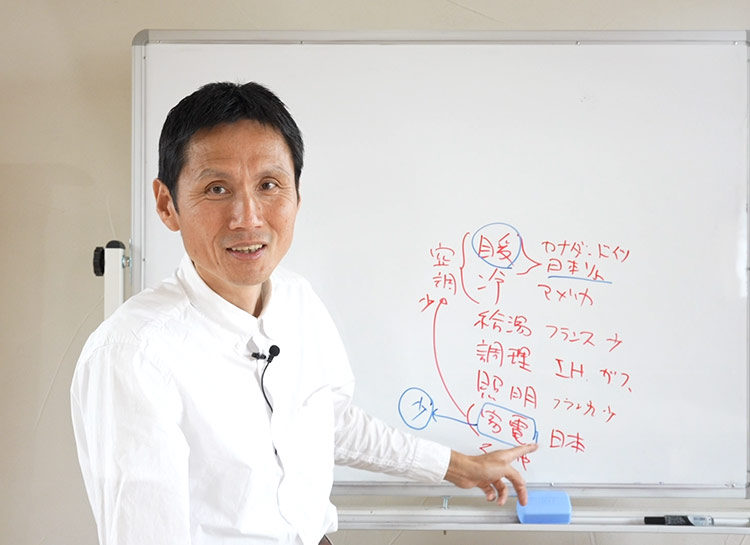 空調 少
暖 カナダ、ドイツ
日本少
冷 アメリカ
給湯 フランス 少
調理 IH、ガス
照明 フランス 少
少 家電 日本